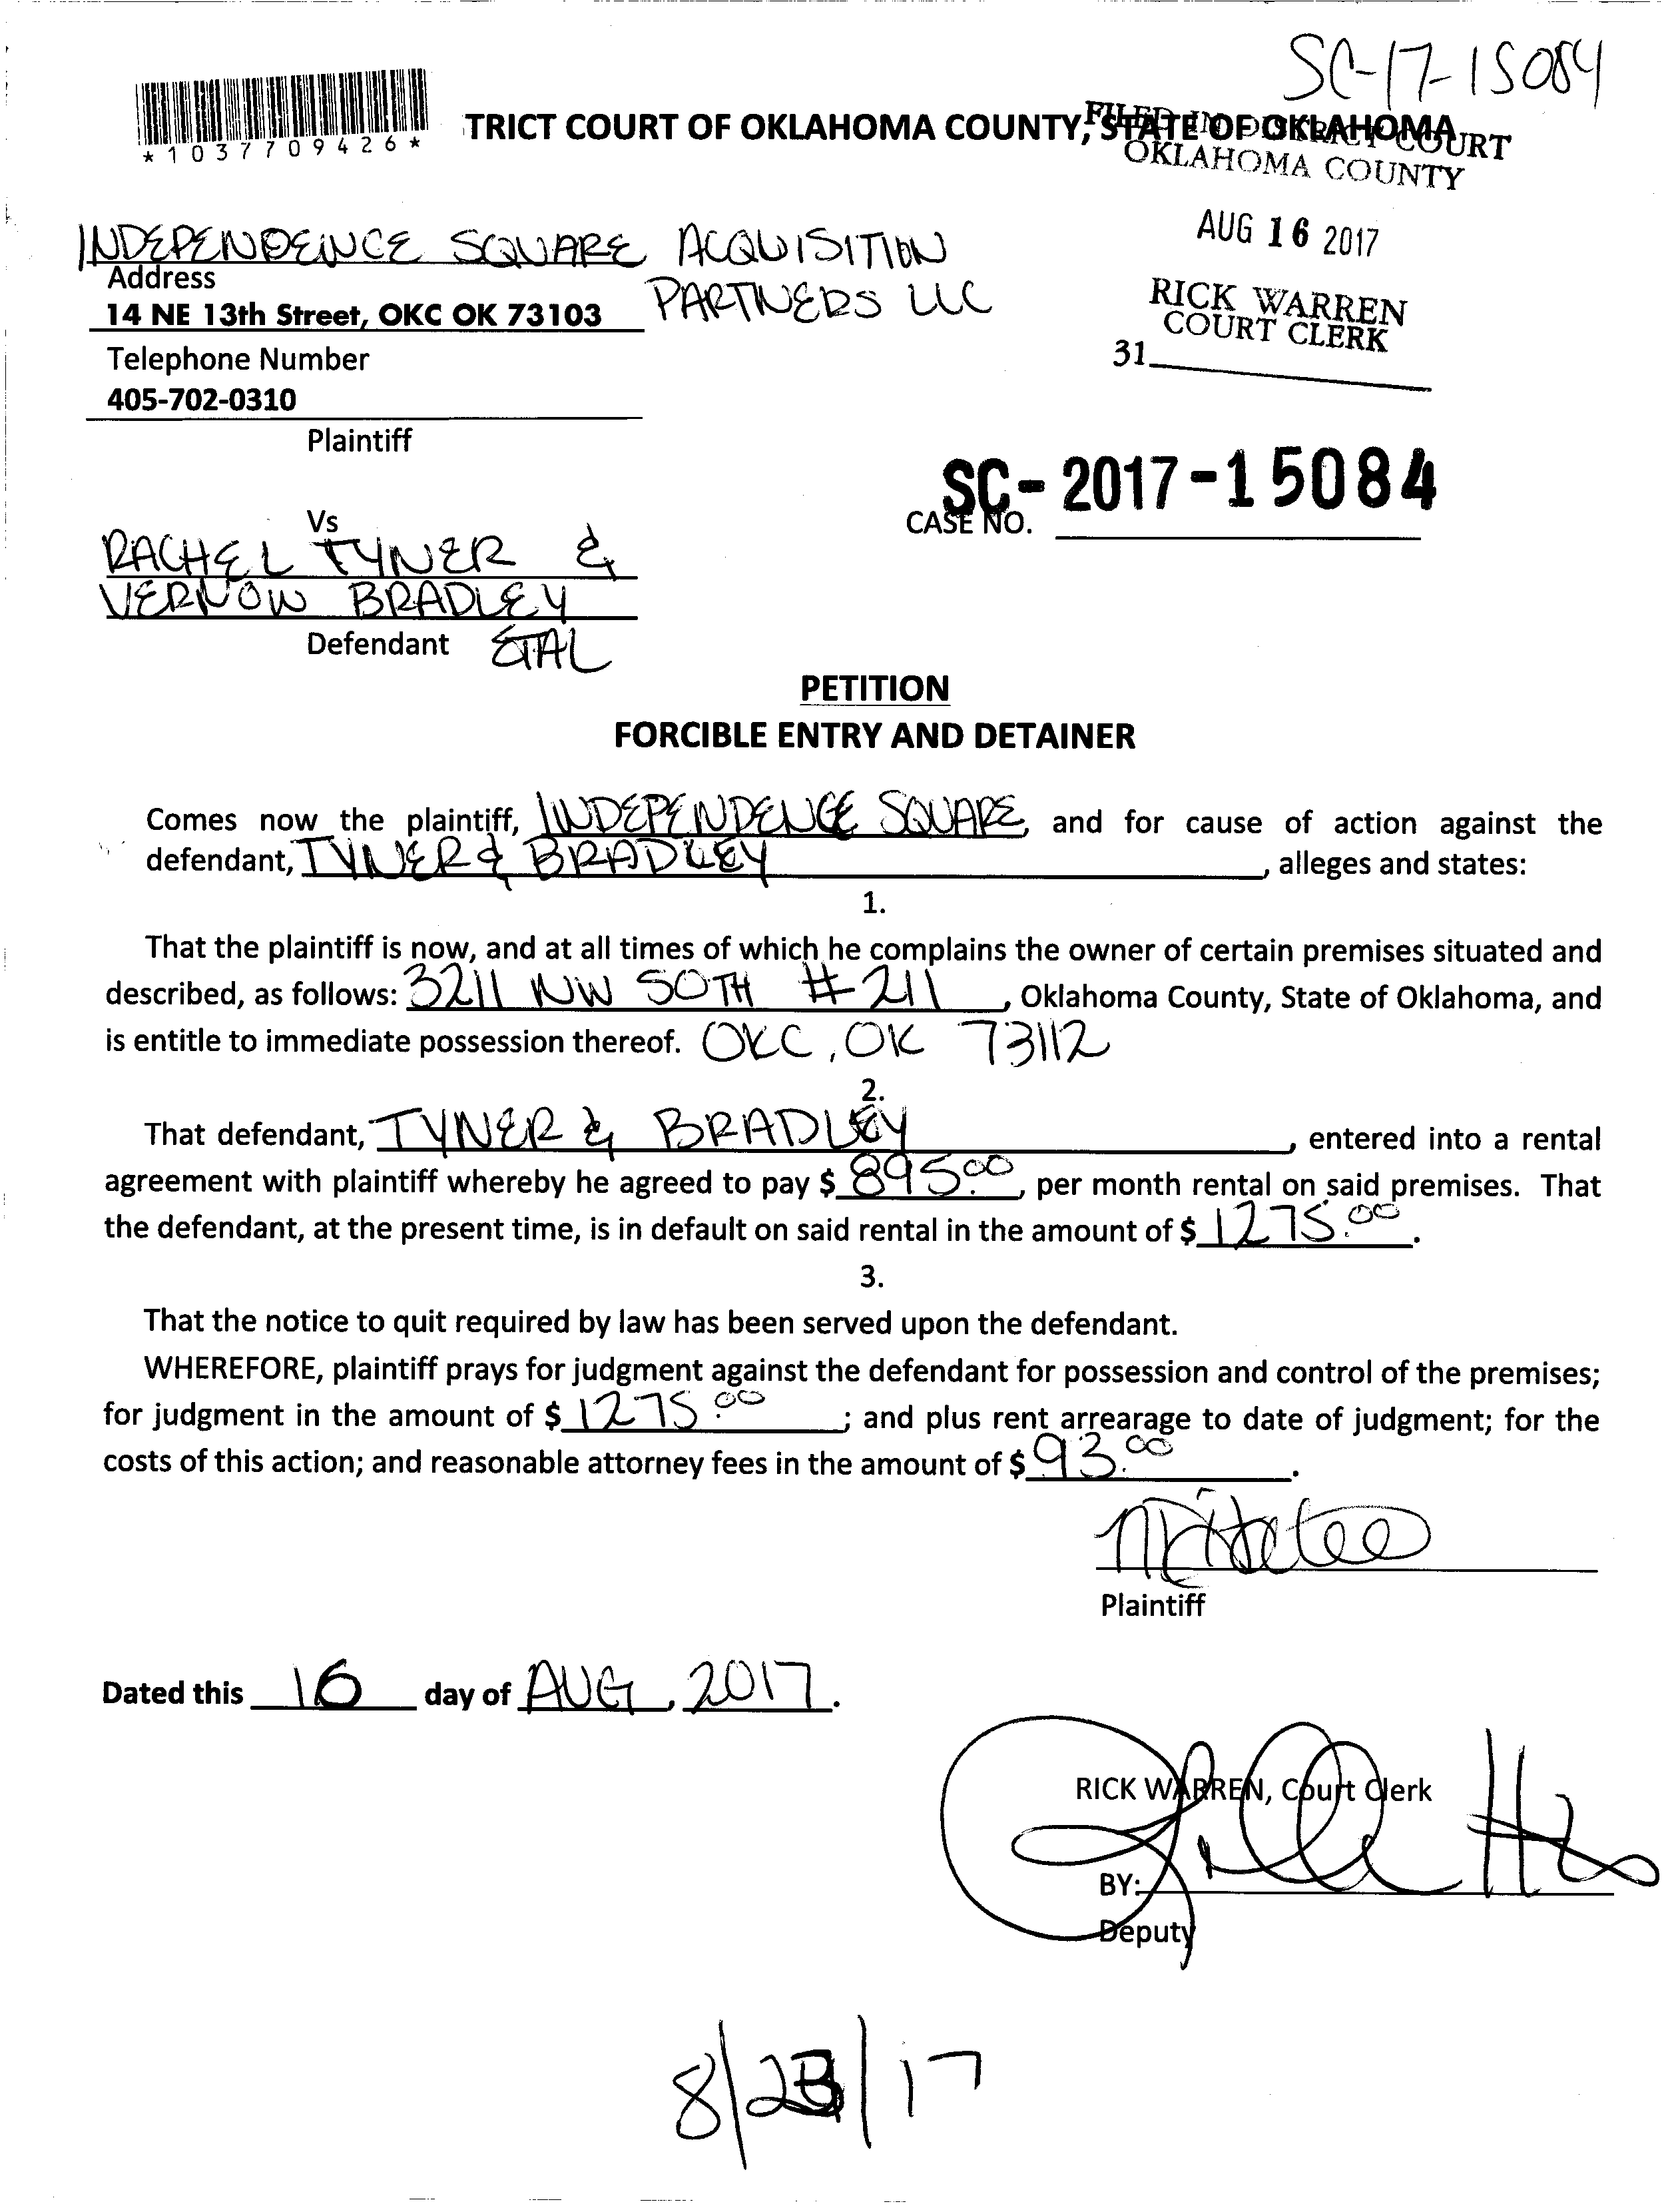 SC-17-15084
*1037709426*
TRICT COURT OF OKLAHOMA COUNTY, STATE OF OKLAHOMA
FILED IN DISTRICT COURT
OKLAHOMA COUNTY
AUG 16 2017
RICK WARREN
COURT CLERK
31
INDEPENDENCE SQUARE ACQUISITION
PARTNERS LLC
Address
14 NE 13th Street, OKC OK 73103
Telephone Number
405-702-0310
Plaintiff
SC-2017-15084
CASE NO.
Vs
RACHEL TYNER &
VERNON BRADLEY
Defendant ETAL
PETITION
FORCIBLE ENTRY AND DETAINER
Comes now the plaintiff, INDEPENDENCE SQUARE, and for cause of action against the
defendant, TYNER & BRADLEY, alleges and states:
1.
That the plaintiff is now, and at all times of which he complains the owner of certain premises situated and
described, as follows: 3211 NW 50TH #211, Oklahoma County, State of Oklahoma, and
is entitle to immediate possession thereof. OKC, OK 73112
2.
That defendant, TYNER & BRADLEY, entered into a rental
agreement with plaintiff whereby he agreed to pay $ 895.00, per month rental on said premises. That
the defendant, at the present time, is in default on said rental in the amount of $ 1275.00.
3.
That the notice to quit required by law has been served upon the defendant.
WHEREFORE, plaintiff prays for judgment against the defendant for possession and control of the premises;
for judgment in the amount of $ 1275.00; and plus rent arrearage to date of judgment; for the
costs of this action; and reasonable attorney fees in the amount of $ 93.00.
Plaintiff
Dated this 16 day of AUG, 2017.
RICK WARREN, Court Clerk
BY:
Deputy
8/23/17